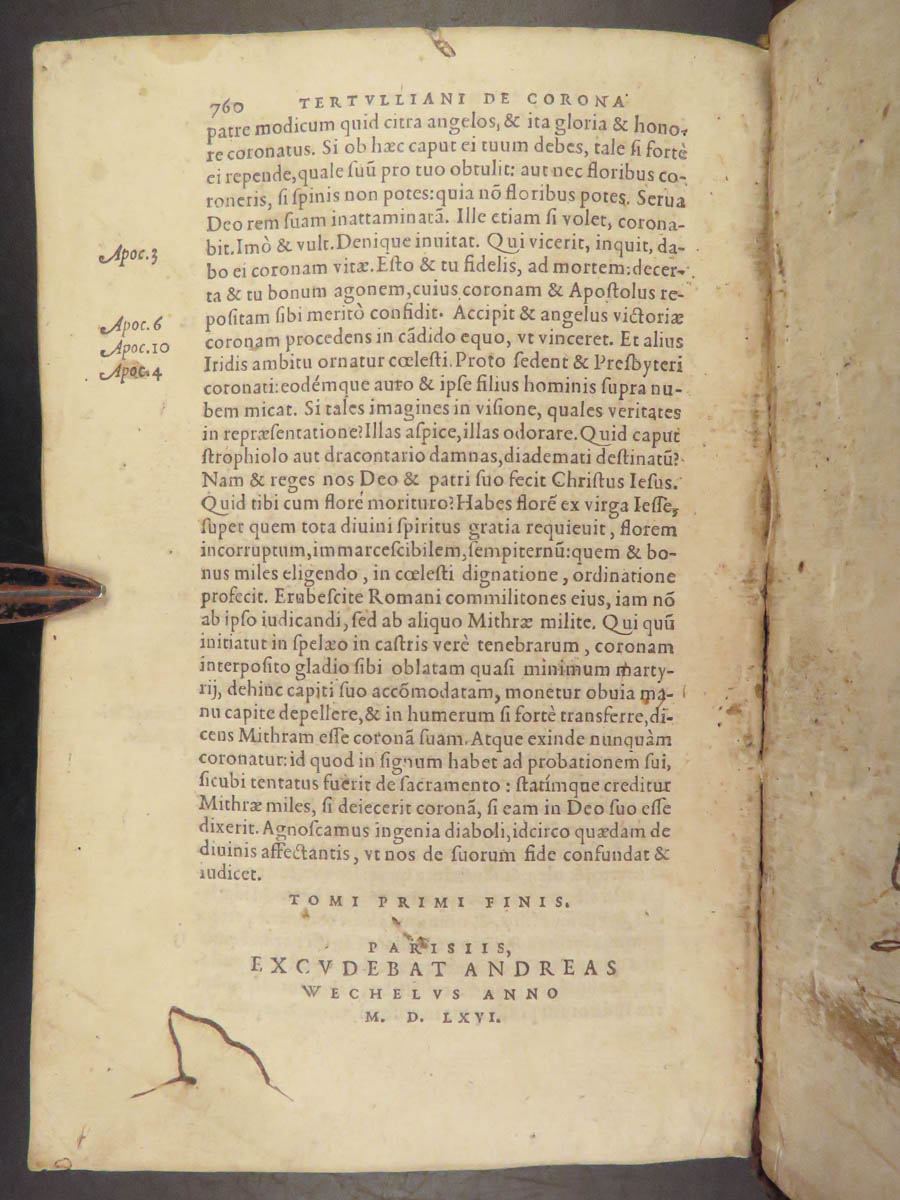 760 TERTVLLIANI DE CORONA
patre modicum quid citra angelos, & ita gloria & hono-
re coronatus. Si ob hæc caput ei tuum debes, tale si fortè
ei repende, quale suũ pro tuo obtulit: aut nec floribus co-
roneris, si spinis non potes: quia nõ floribus potes. Serua
Deo rem suam inattaminatã. Ille etiam si volet, corona-
bit. Imò & vult. Denique inuitat. Qui vicerit, inquit, da-
Apoc. 3
bo ei coronam vitæ. Esto & tu fidelis, ad mortem: decer-
ta & tu bonum agonem, cuius coronam & Apostolus re-
positam sibi meritò confidit. Accipit & angelus victoriæ
Apoc. 6
coronam procedens in cãdido equo, vt vinceret. Et alius
Apoc. 10
Iridis ambitu ornatur cœlesti. Proto sedent & Presbyteri
Apoc. 4
coronati: eodémque auro & ipse filius hominis supra nu-
bem micat. Si tales imagines in visione, quales veritates
in repræsentatione? Illas aspice, illas odorare. Quid caput
strophiolo aut dracontario damnas, diademati destinatũ?
Nam & reges nos Deo & patri suo fecit Christus Iesus.
Quid tibi cum florẽ morituro? Habes florẽ ex virga Iesse,
super quem tota diuini spiritus gratia requieuit, florem
incorruptum, immarcescibilem, sempiternũ: quem & bo-
nus miles eligendo, in cœlesti dignatione, ordinatione
profecit. Erubescite Romani commilitones eius, iam nõ
ab ipso iudicandi, sed ab aliquo Mithræ milite. Qui quũ
initiatur in spelæo in castris verè tenebrarum, coronam
interposito gladio sibi oblatam quasi minimum marty-
rij, dehinc capiti suo accõmodatam, monetur obuia ma-
nu capite depellere, & in humerum si fortè transferre, di-
cens Mithram esse coronã suam. Atque exinde nunquàm
coronatur: id quod in signum habet ad probationem sui,
sicubi tentatus fuerit de sacramento: statímque creditur
Mithræ miles, si deiecerit coronã, si eam in Deo suo esse
dixerit. Agnoscamus ingenia diaboli, idcirco quædam de
diuinis affectantis, vt nos de suorum fide confundat &
iudicet.
TOMI PRIMI FINIS.
PARISIIS,
EXCVDEBAT ANDREAS
WECHELVS ANNO
M. D. LXVI.